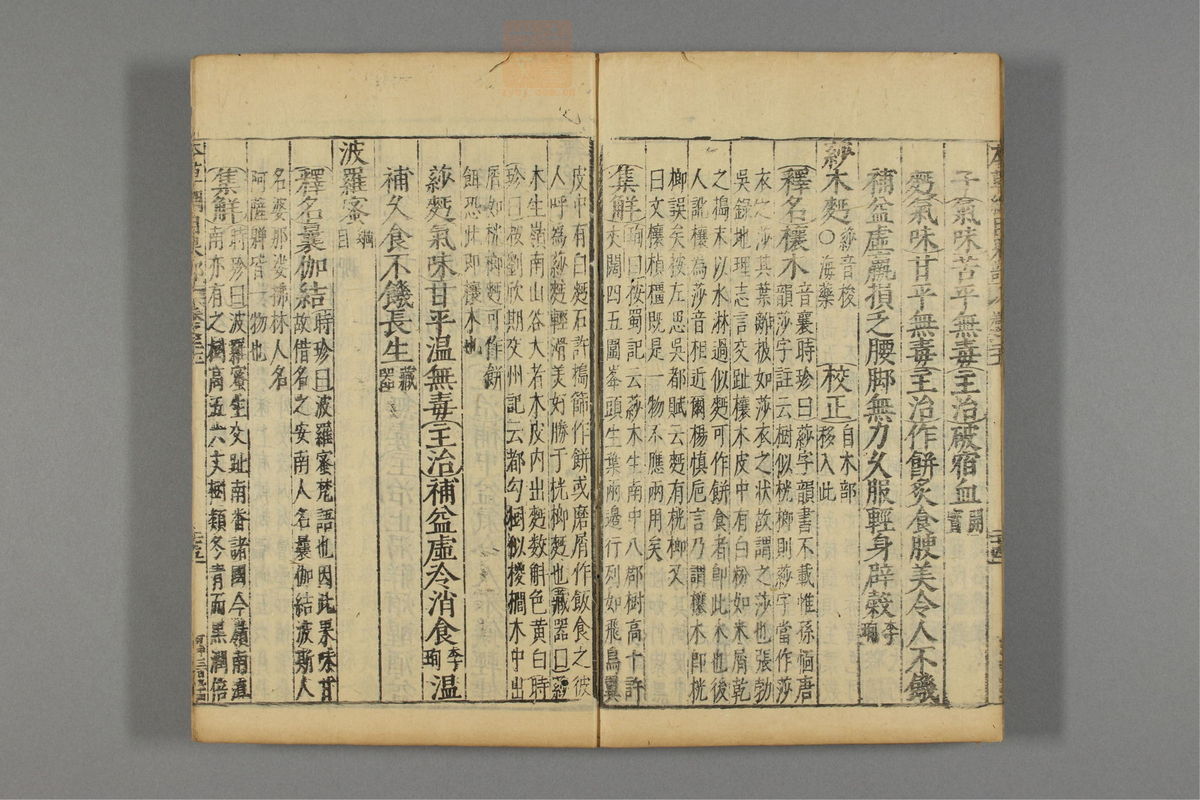 子氣味苦平無毒主治破宿血開寶
麪氣味甘平無毒主治作餅炙食腴美令人不饑
補益虛羸損乏腰脚無力久服輕身辟穀李珣
莎木麪莎音梭○海藥校正自木部移入此
釋名欀木音襄時珍曰莎字韻書不載惟孫愐唐
韻莎字註云樹似桄榔則莎字當作莎
衣之莎其葉離披如莎衣之狀故謂之莎也張勃
吳錄地理志言交趾欀木皮中有白粉如米屑乾
之搗末以水淋過似麪可作餅食者即此木也後
人訛欀為莎音相近爾楊慎巵言乃謂欀木即桄
榔誤矣按左思吳都賦云麪有桄榔又
曰文欀楨橿既是一物不應兩用矣
集解珣曰按蜀記云莎木生南中八郡樹高十許
丈闊四五圍峯頭生葉兩邊行列如飛鳥翼
皮中有白麪石許搗篩作餅或磨屑作飯食之彼
人呼為莎麪輕滑美好勝于桄榔麪也藏器曰莎
木生嶺南山谷大者木皮內出麪數斛色黃白時
珍曰按劉欣期交州記云都勾樹似椶櫚木中出
屑如桄榔麪可作餅
餌恐此即欀木也
莎麪氣味甘平溫無毒主治補益虛冷消食李珣溫
補久食不饑長生藏器
波羅蜜綱目
釋名曩伽結時珍曰波羅蜜梵語也因此果味甘
故借名之安南人名曩伽結波斯人
名婆那娑拂林人名
阿薩軃皆一物也
集解時珍曰波羅蜜生交趾南番諸國今嶺南滇
南亦有之樹高五六丈樹類冬青而黑潤倍